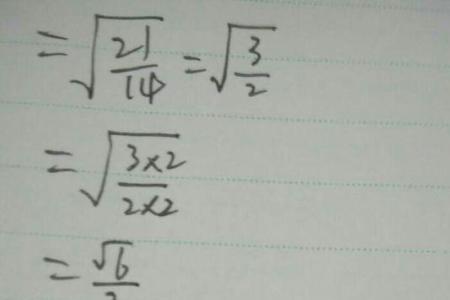 = √(21/14) = √(3/2)
= √((3×2)/(2×2))
= √6/